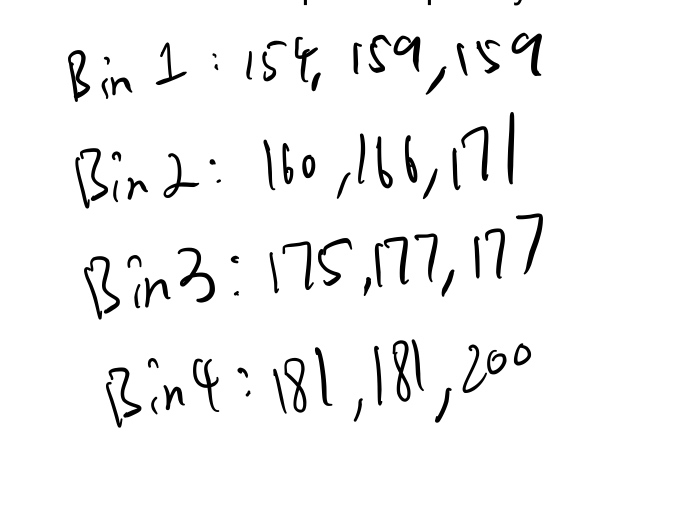 Bin 1 : 154, 159, 159
Bin 2 : 160, 166, 171
Bin 3 : 175, 177, 177
Bin 4 : 181, 181, 200